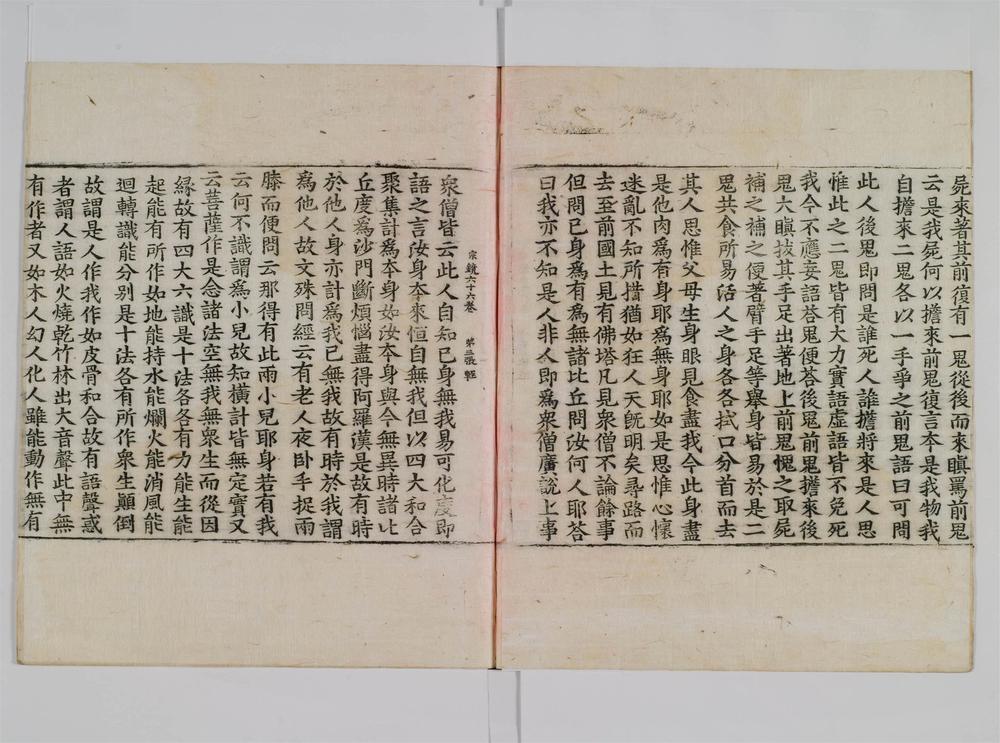 屍來著其前復有一鬼從後而來瞋罵前鬼
云是我屍何以擔來前鬼復言本是我物我
自擔來二鬼各以一手爭之前鬼語曰可問
此人後鬼即問是誰死人誰擔將來是人思
惟此之二鬼皆有大力實語虛語皆不免死
我今不應妄語荅鬼便荅後鬼前鬼擔來後
鬼大瞋拔其手足出著地上前鬼愧之取屍
補之補之便著臂手足等舉身皆易於是二
鬼共食所易活人之身各各拭口分首而去
其人思惟父母生身眼見食盡我今此身盡
是他肉爲有身耶爲無身耶如是思惟心懷
迷亂不知所措猶如狂人天旣明矣尋路而
去至前國土見有佛塔凡見衆僧不論餘事
但問已身爲有爲無諸比丘問汝何人耶荅
曰我亦不知是人非人即爲衆僧廣說上事
宗鏡六十六卷 第三張 軽
衆僧皆云此人自知已身無我易可化度即
語之言汝身夲來恒自無我但以四大和合
聚集計爲夲身如汝夲身與今無異時諸比
丘度爲沙門斷煩惱盡得阿羅漢是故有時
於他人身亦計爲我已無我故有時於我謂
爲他人故文殊問經云有老人夜卧手捉兩
膝而便問云那得有此兩小兒耶身若有我
云何不識謂爲小兒故知橫計皆無定實又
云菩薩作是念諸法空無我無衆生而從因
緣故有四大六識是十法各各有力能生能
起能有所作如地能持水能爛火能消風能
迴轉識能分别是十法各有所作衆生顚倒
故謂是人作我作如皮骨和合故有語聲惑
者謂人語如火燒乾竹林出大音聲此中無
有作者又如木人幻人化人雖能動作無有